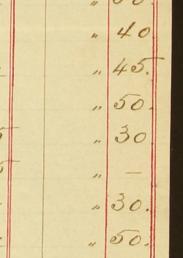 " 40
" 45.
" 50.
" 30
" —
" 30.
" 50.